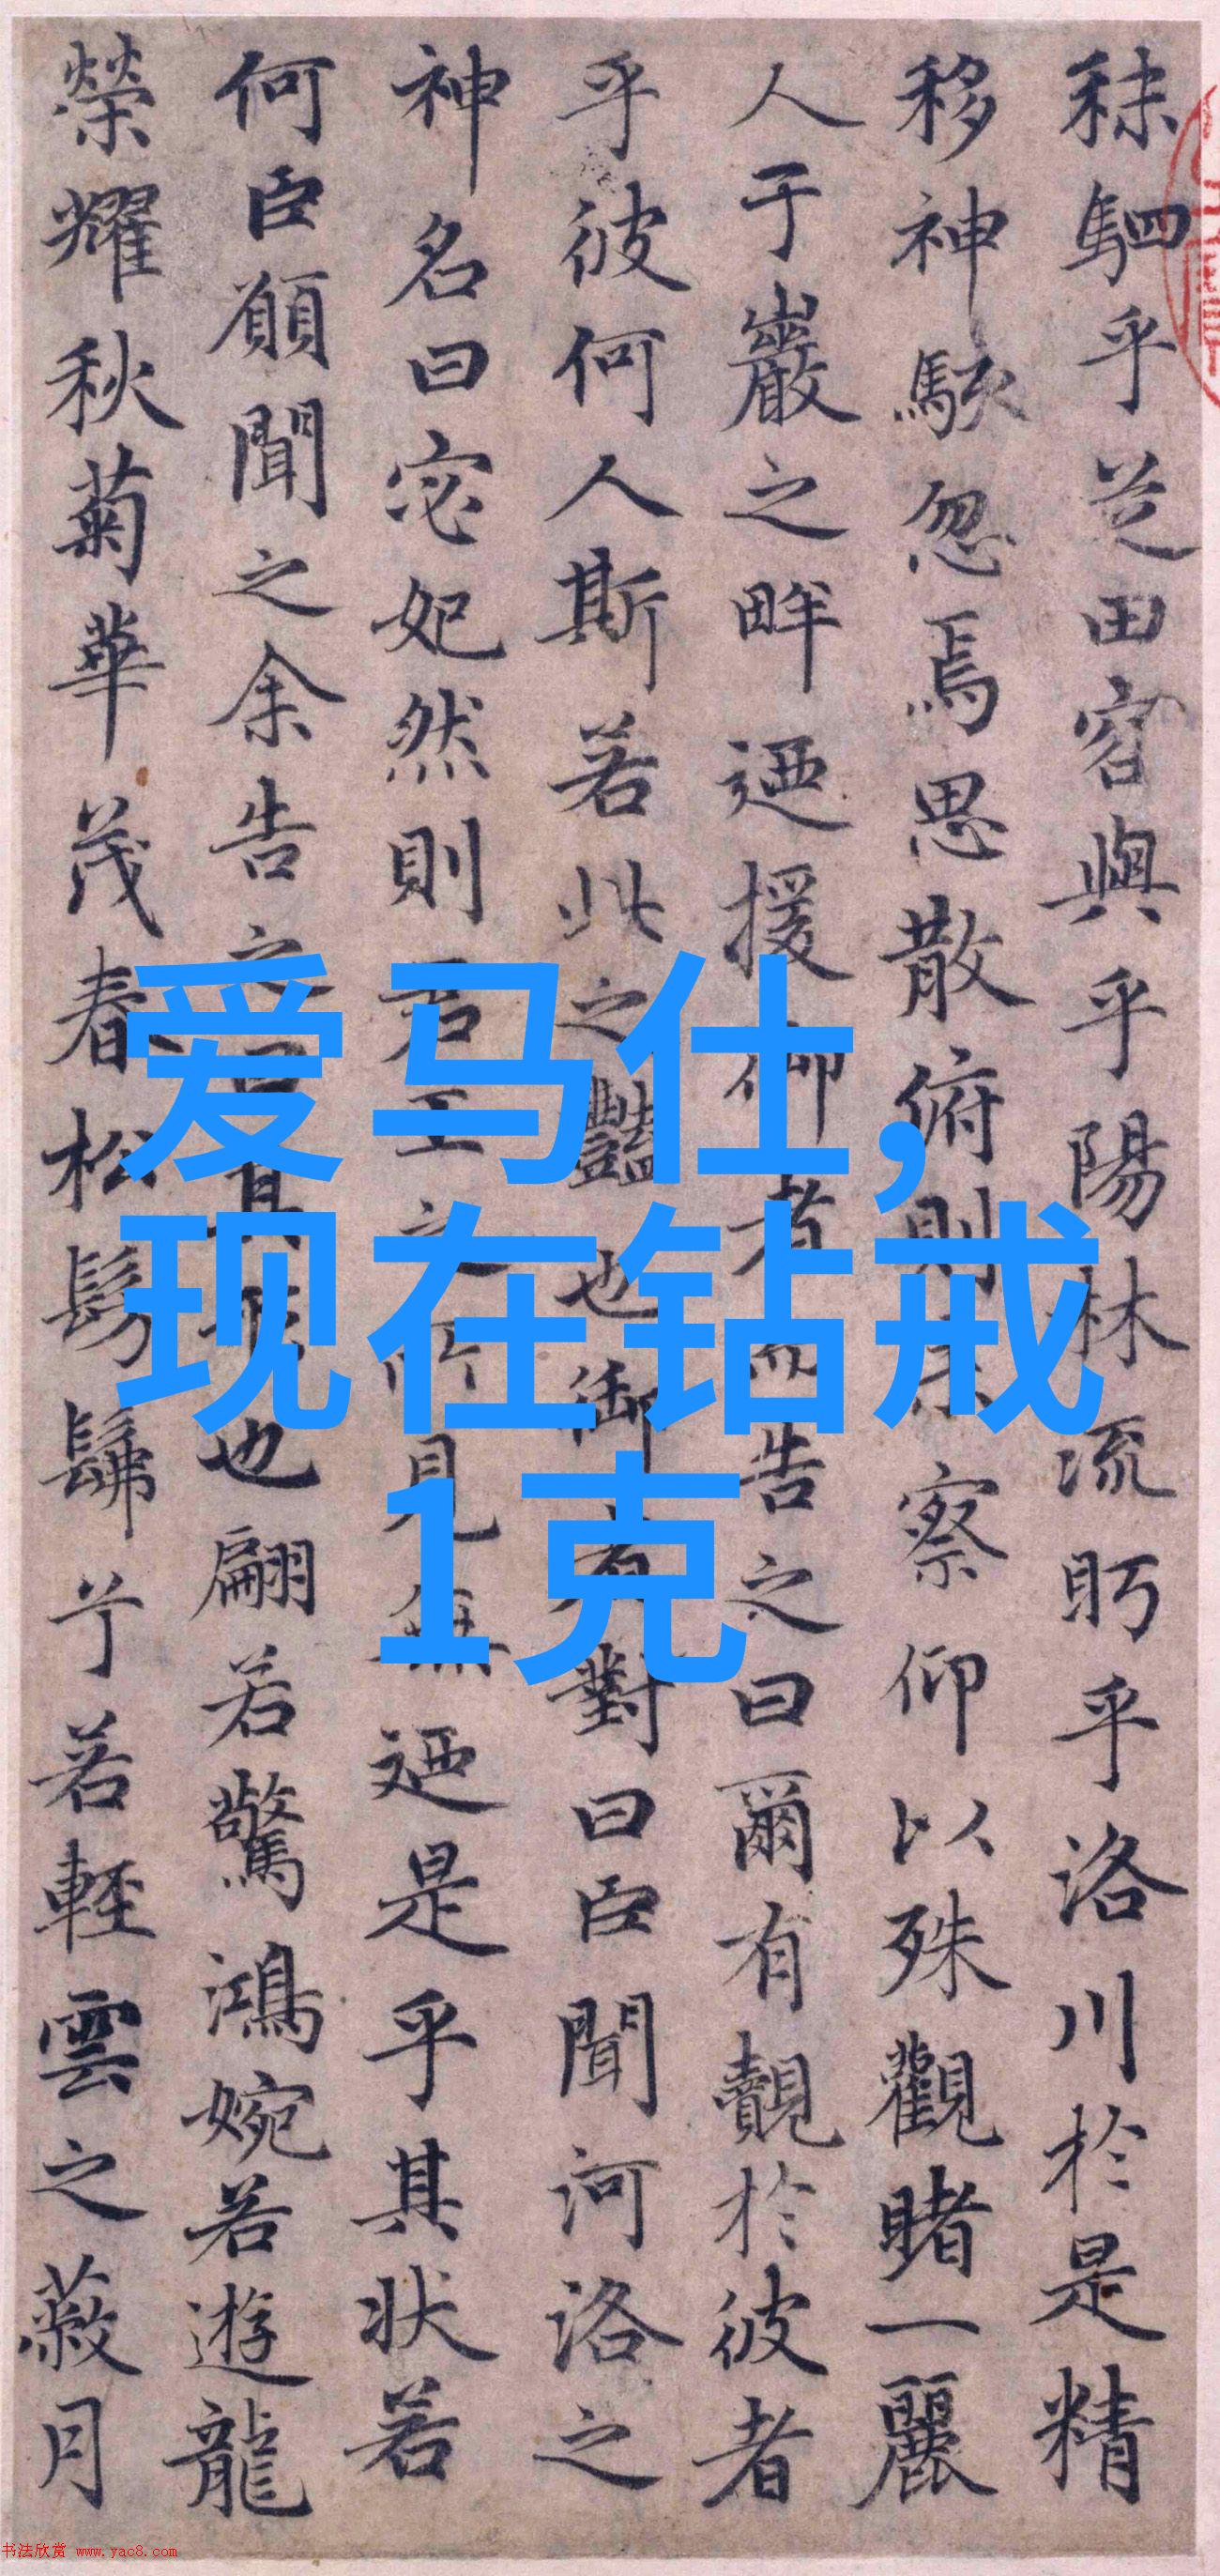 秣駟乎芝田容與乎陽林流眄乎洛川於是精
移神駭忽焉思散俯則未察仰以殊觀睹一麗
人于巖之畔迺援御者而告之曰爾有覿於彼者
乎彼何人斯若此之豔也御者對曰臣聞河洛之
神名曰宓妃然則君王之所見無迺是乎其狀若
何臣願聞之余告之曰其形也翩若驚鴻婉若遊龍
榮耀秋菊華茂春松髣髴兮若輕雲之蔽月
爱马仕，
现在钻戒
1克
书法欣赏 www.yac8.com